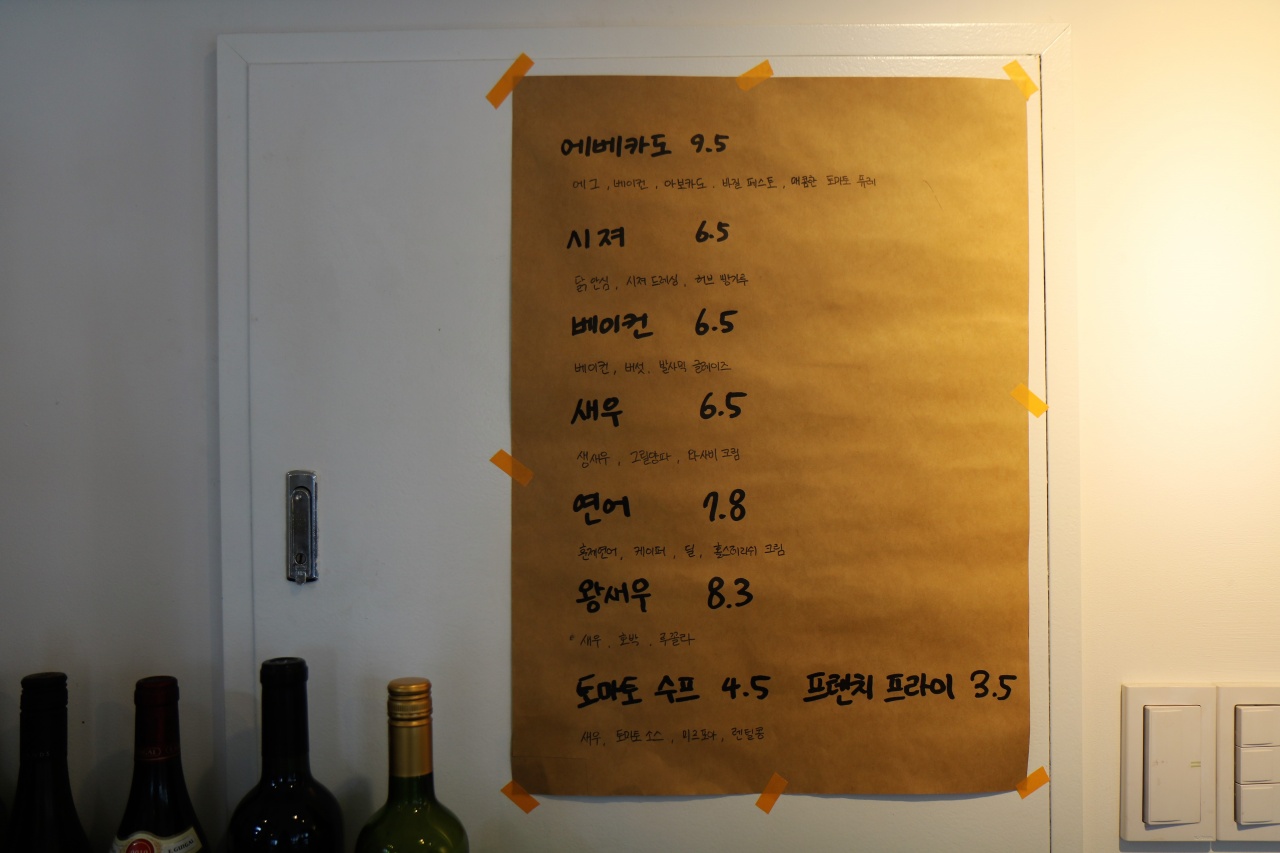 에베카도 9.5
에그, 베이컨, 아보카도, 바질 페스토, 매콤한 토마토 퓨레
시져 6.5
닭안심, 시져 드레싱, 허브 빵가루
베이컨 6.5
베이컨, 버섯, 발사믹 글레이즈
새우 6.5
생새우, 그릴양파, 와사비 크림
연어 7.8
훈제연어, 케이퍼, 딜, 홀스래디쉬 크림
왕새우 8.3
새우, 호박, 루꼴라
토마토 수프 4.5 프렌치 프라이 3.5
새우, 토마토 소스, 렌틸콩